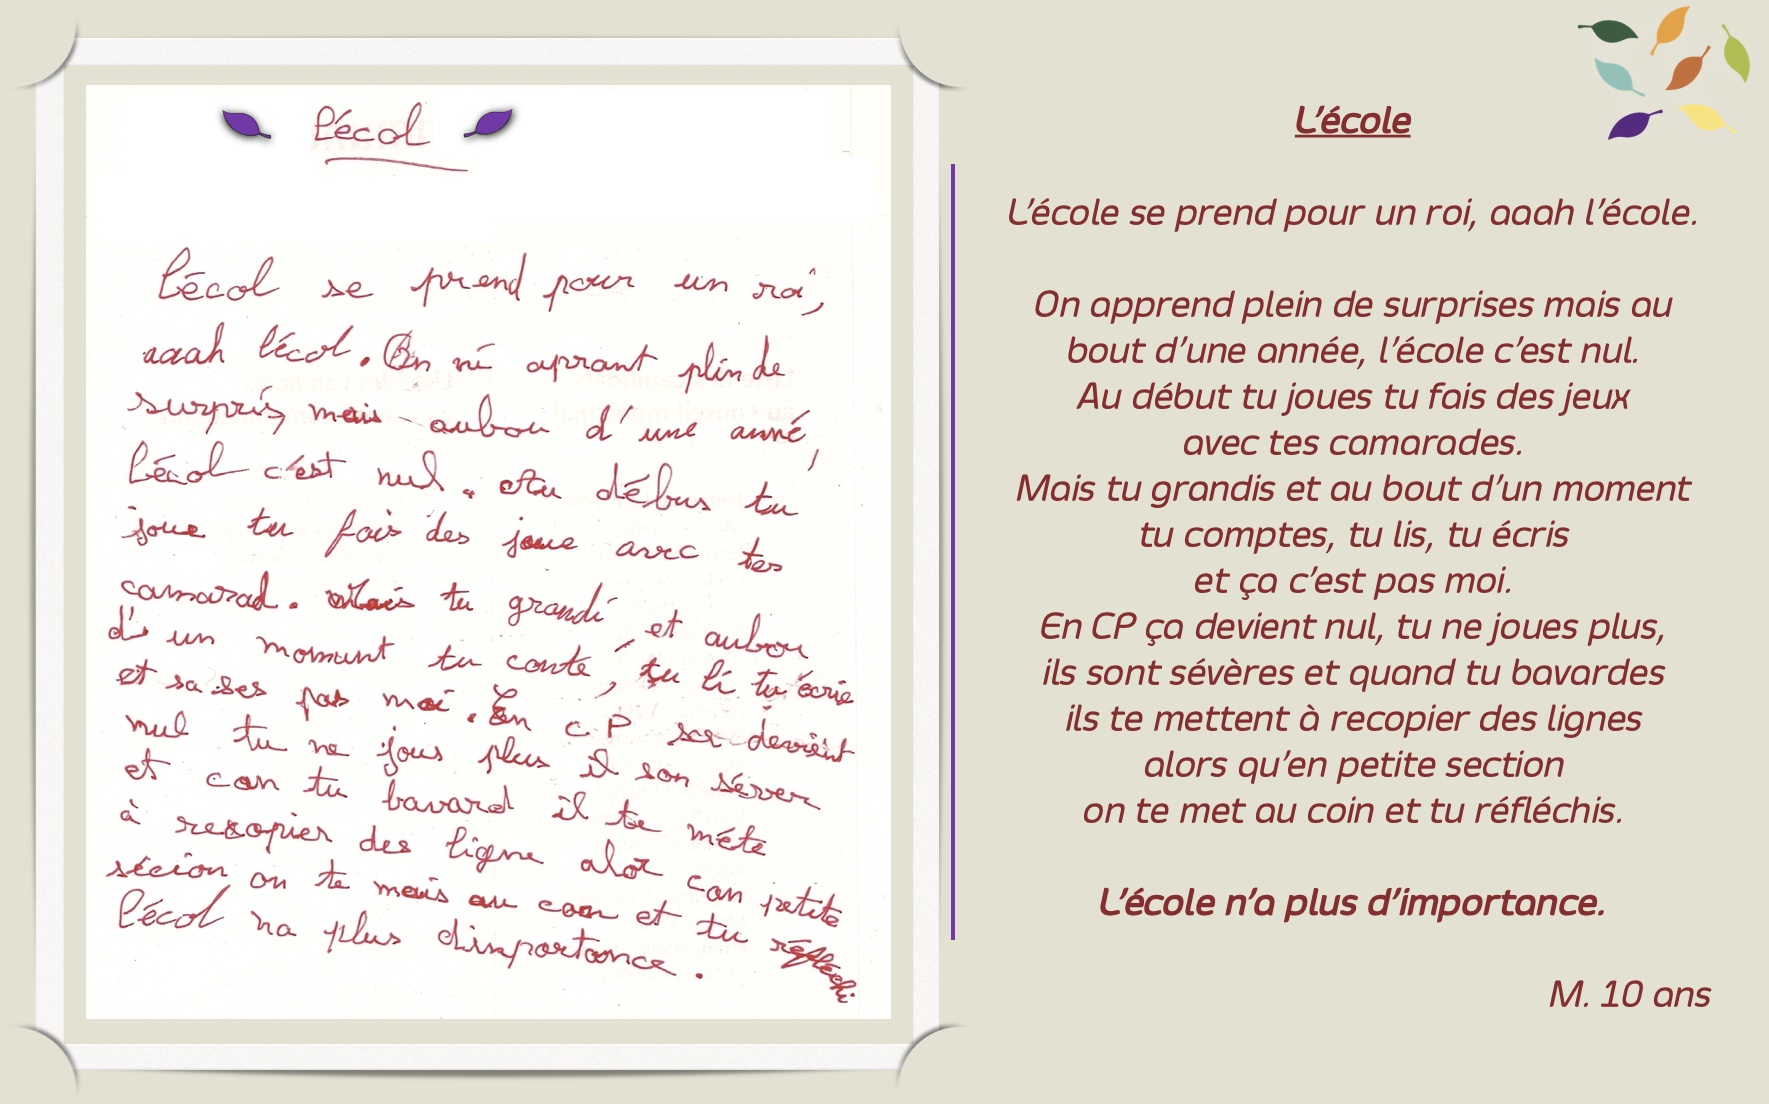 L'écol
L'écol se prend pour un roi,
aaah l'écol. On né aprant plinde
surpris, mais aubou d'une anné,
L'écol c'est nul. Au débus tu
joue tu fais des joue avec tes
camarad. Mais tu grandi et aubou
d'un moment tu conté, tu li tu écrie
et sa ses pas moi. En CP sa devient
nul tu ne jous plus il son séver
et can tu bavard il te méte
à recopier des ligne alor can petite
sécion on te mais au coin et tu réfléchi.
L'écol na plus d'importance.
L'école
L'école se prend pour un roi, aaah l'école.
On apprend plein de surprises mais au
bout d'une année, l'école c'est nul.
Au début tu joues tu fais des jeux
avec tes camarades.
Mais tu grandis et au bout d'un moment
tu comptes, tu lis, tu écris
et ça c'est pas moi.
En CP ça devient nul, tu ne joues plus,
ils sont sévères et quand tu bavardes
ils te mettent à recopier des lignes
alors qu'en petite section
on te met au coin et tu réfléchis.
L'école n'a plus d'importance.
M. 10 ans